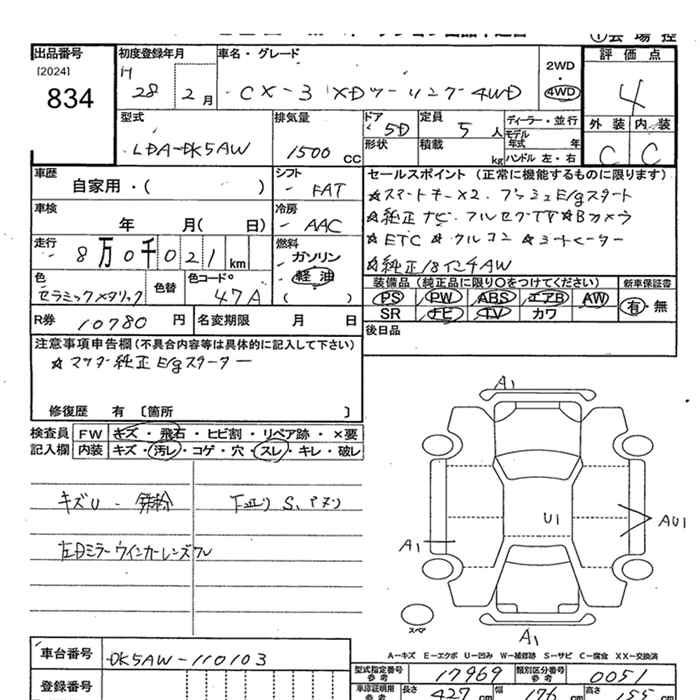 出品番号 初度登録年月 車名・グレード 2WD・4WD 評価点
[2024]
834
H 28 2月 CX-3 XDツーリング 4WD 4
型式 排気量 ドア 定員 ディーラー・並行 外装 内装
LDA-DK5AW 1500cc 5D 5人 モデル年式 年 C C
形状 積載 kg ハンドル 左・右
車歴 自家用・( ) シフト FAT セールスポイント (正常に機能するものに限ります)
☆スマートキーX2. プッシュE/gスタート
車検 年 月( 日) 冷房 AAC ☆純正ナビ.フルセグTV ☆Bカメラ
走行 8万0千021km 燃料 ガソリン 軽油 ( ) ☆ETC ☆クルコン ☆シートヒーター
☆純正18インチAW
色 セラミックメタリック 色替 色コード 47A
装備品 (純正品に限り○をつけてください) 新車保証書
PS PW ABS エアB AW 有・無
SR ナビ TV カワ
R券 10780円 名変期限 月 日 後日品
注意事項申告欄(不具合内容等は具体的に記入して下さい)
☆マツダ純正E/gスターター
修復歴 有 [箇所 ]
検査員 FW キズ・飛石・ヒビ割・リペア跡・×要
記入欄 内装 キズ・汚レ・コゲ・穴・スレ・キレ・破レ
キズU・鉄粉 下廻りS、アオリ
左Dミラーウインカーレンズワレ
A1
U1 AU1
A1
スペア
A1
A-キズ E-エクボ U-凹み W-補修跡 S-サビ C-腐食 XX-交換済
車台番号 DK5AW-110103
型式指定番号 参考 17969 類別区分番号 参考 0051
登録番号 車庫証明用 参考 長さ 427cm 幅 176cm 高さ 155cm